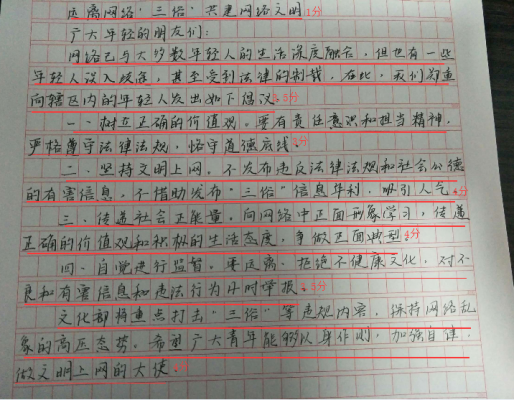 远离网络“三俗”共建网络文明 1分
广大年轻的朋友们：
网络已与大多数年轻人的生活深度融合，但也有一些
年轻人误入歧途，甚至受到法律的制裁，在此，我们郑重
向辖区内的年轻人发出如下倡议：5分
一、树立正确的价值观。要有责任意识和担当精神，
严格遵守法律法规，恪守道德底线。
二、坚持文明上网。不发布违反法律法规和社会公德
的有害信息，不借助发布“三俗”信息牟利，吸引人气。分
三、传递社会正能量。向网络中正面形象学习，传递
正确的价值观和积极的生活态度，争做正面典型。分
四、自觉进行监督。要远离、拒绝不健康文化，对不
良和有害信息和违法行为及时举报。5分
文化部将重点打击“三俗”等违规内容，保持网络乱
象的高压态势。希望广大青年能够以身作则，加强自律，
做文明上网的大使。分